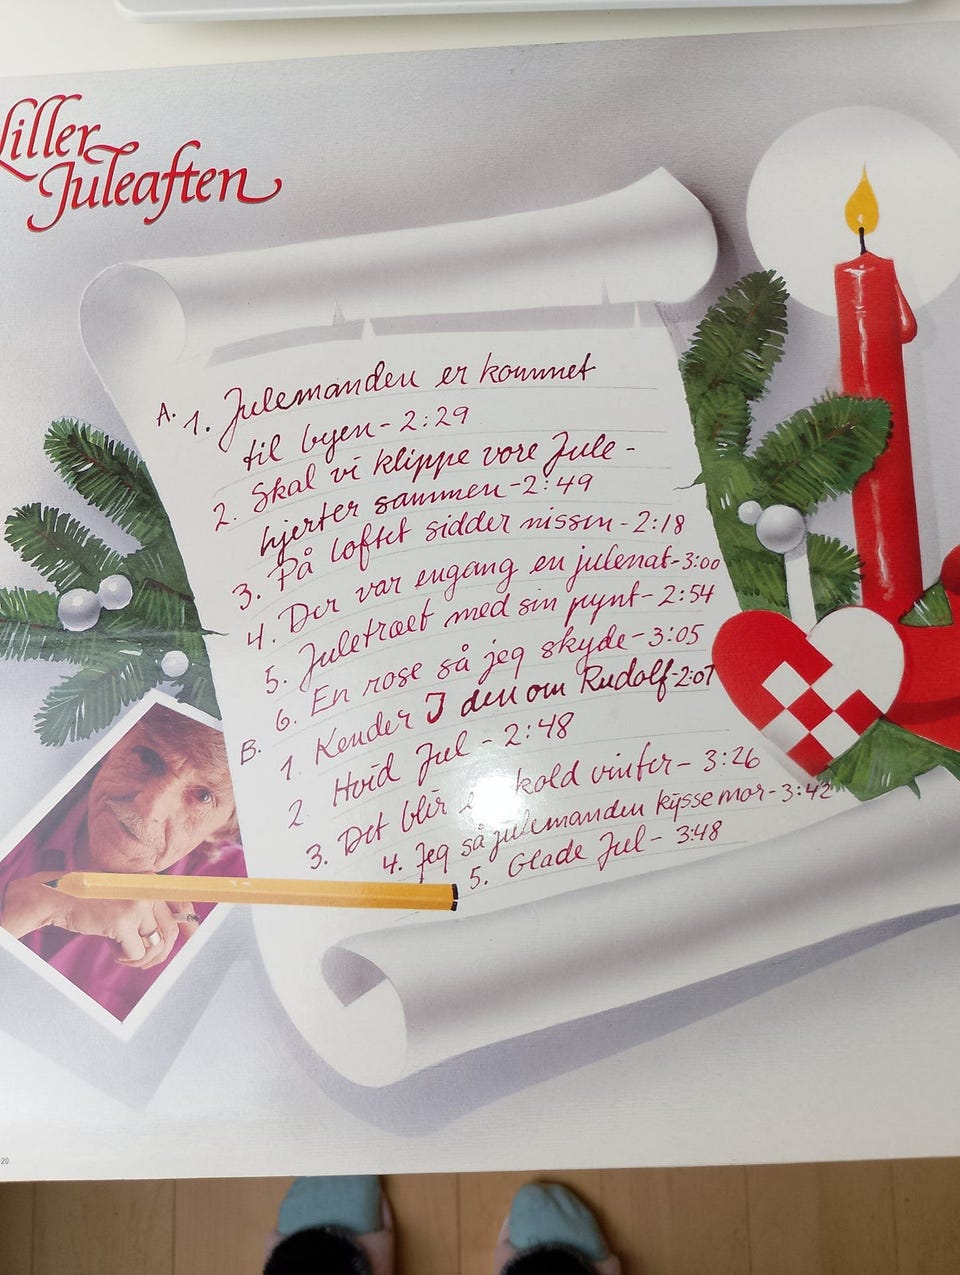 Liller
Juleaften
A. 1. Julemanden er kommet
til byen - 2:29
2. Skal vi klippe vore Jule-
hjerter sammen - 2:49
3. På loftet sidder nissen - 2:18
4. Der var engang en julenat - 3:00
5. Juletræet med sin pynt - 2:54
6. En rose så jeg skyde - 3:05
B. 1. Kender I den om Rudolf - 2:07
2. Hvid Jul - 2:48
3. Det blir kold vinter - 3:26
4. Jeg så julemanden kysse mor - 3:42
5. Glade Jul - 3:48
20